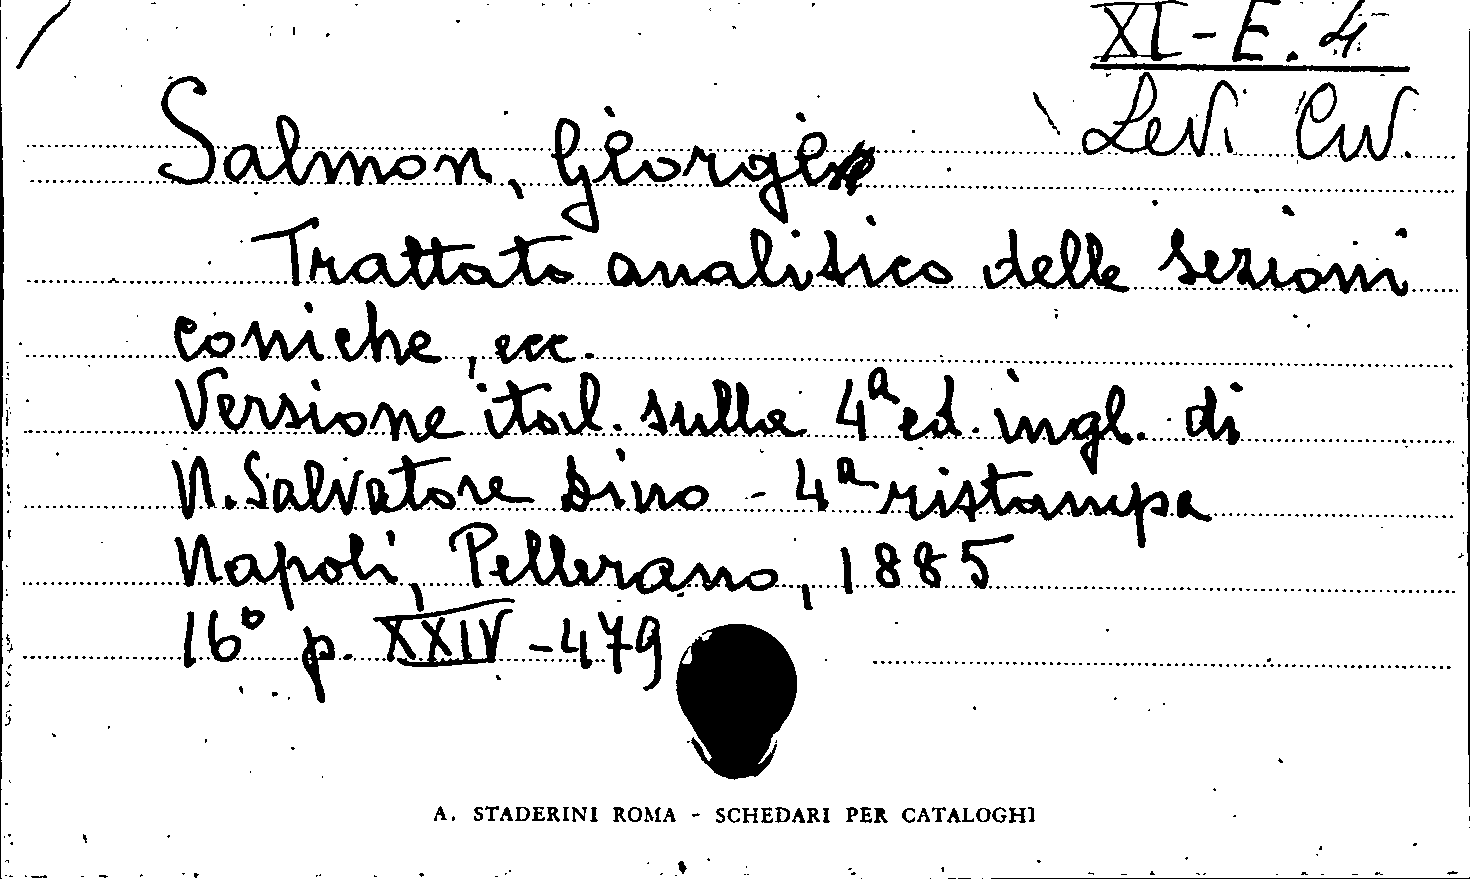 XI-E.4
Levi Civ.
Salmon, George
Trattato analitico delle sezioni
coniche, ecc.
Versione ital. sulla 4ª ed. ingl. di
N. Salvatore Dino - 4ª ristampa
Napoli, Pellerano, 1885
16° p. XXIV-479
A. STADERINI ROMA - SCHEDARI PER CATALOGHI